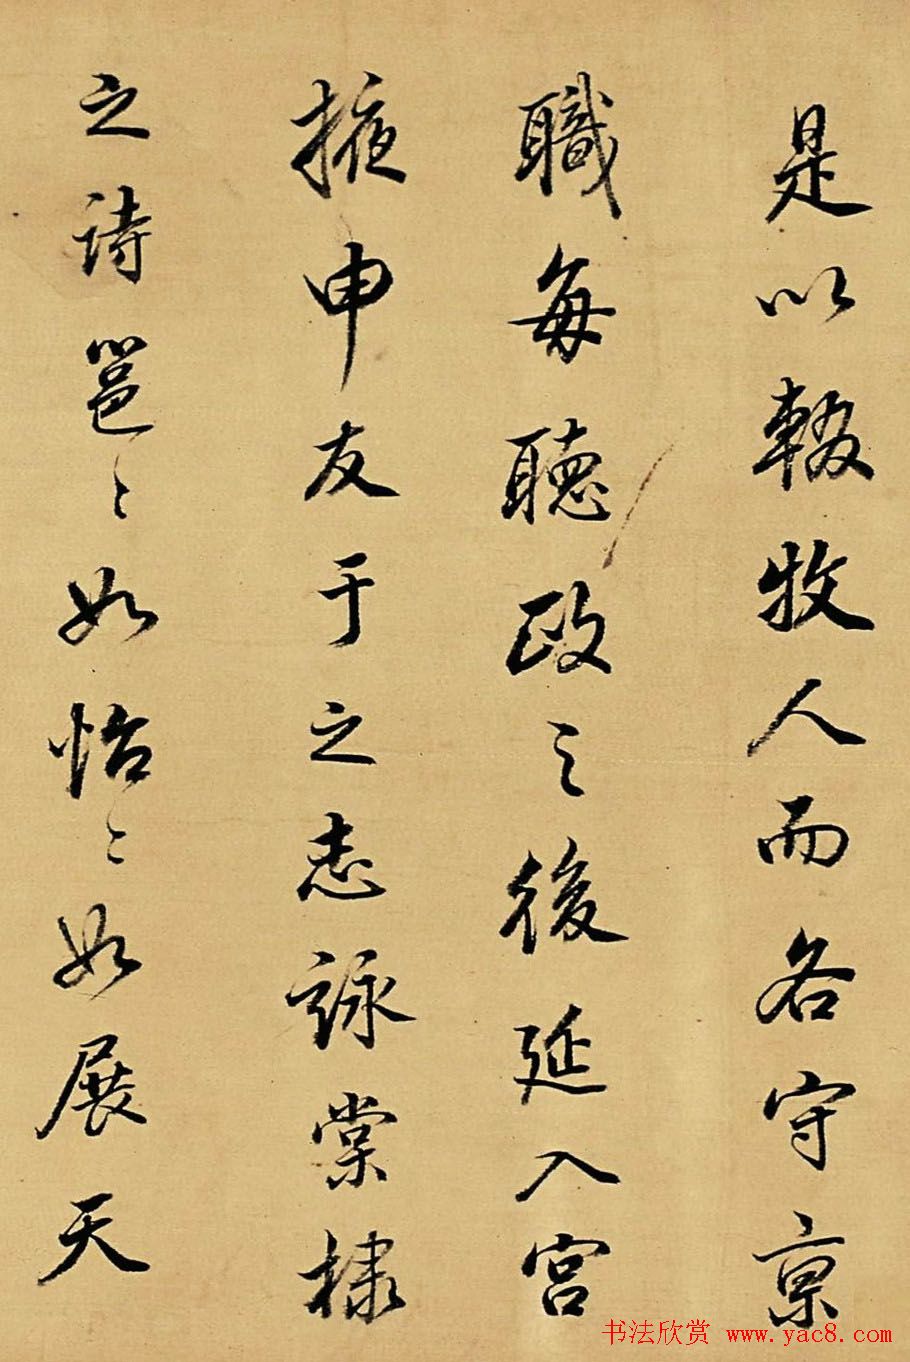 是以輟牧人而各守京
職每聽政之後延入宮
掖申友于之志詠棠棣
之詩邕〻如怡〻如展天
书法欣赏 www.yac8.com